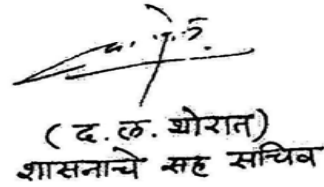 (द. ल. थोरात)
शासनाचे सह सचिव